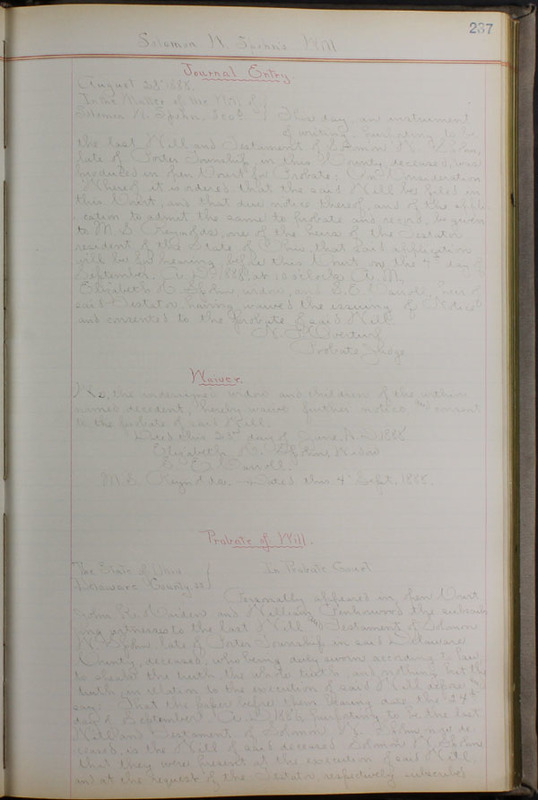 237
Solomon W. Spohn's Will
Journal Entry
August 1888.
In the Matter of the Will of
Solomon W. Spohn, Dec'd This day, an instrument
of writing, purporting to be
the last Will and Testament of Solomon W. Spohn,
late of Porter Township, in this County, deceased, was
produced in open Court for Probate; On Consideration
Whereof, it is ordered that the said Will be filed in
this Court, and that due notice thereof, and of the appli-
cation to admit the same to probate and record, be given
to M. S. one of the heirs of the Testator
resident of the State of Ohio, that said application
will be for hearing before this Court on the 4th day of
September, A.D. 1888, at 10 o'clock A.M.
Elizabeth Spohn widow, and Carroll, heir of
said Testator, having waived the issuing of Notice
and consented to the probate of said Will.
Probate Judge
Waiver.
We, the undersigned widow and children of the within
named decedent, hereby waive further notice and consent
to the probate of said Will.
Dated this day of June, A.D. 1888
Elizabeth Spohn, Widow
Carroll.
M.S. Dated this 4 Sept. 1888.
Probate of Will.
The State of Ohio In Probate Court
Delaware County, ss
Personally appeared in open Court
John and William the subscrib-
ing witnesses to the last Will and Testament of Solomon
W. Spohn, late of Porter Township in said Delaware
County, deceased, who being duly sworn according to law,
to speak the truth, the whole truth, and nothing but the
truth, in relation to the execution of said Will depose &
say: That the paper before them bearing date, the 24th
day of September A.D. purporting to be the last
Will and Testament of Solomon W. Spohn now de-
ceased, is the Will of said deceased Solomon W. Spohn
that they were present at the execution of said Will,
and at the request of the Testator, respectively subscribed